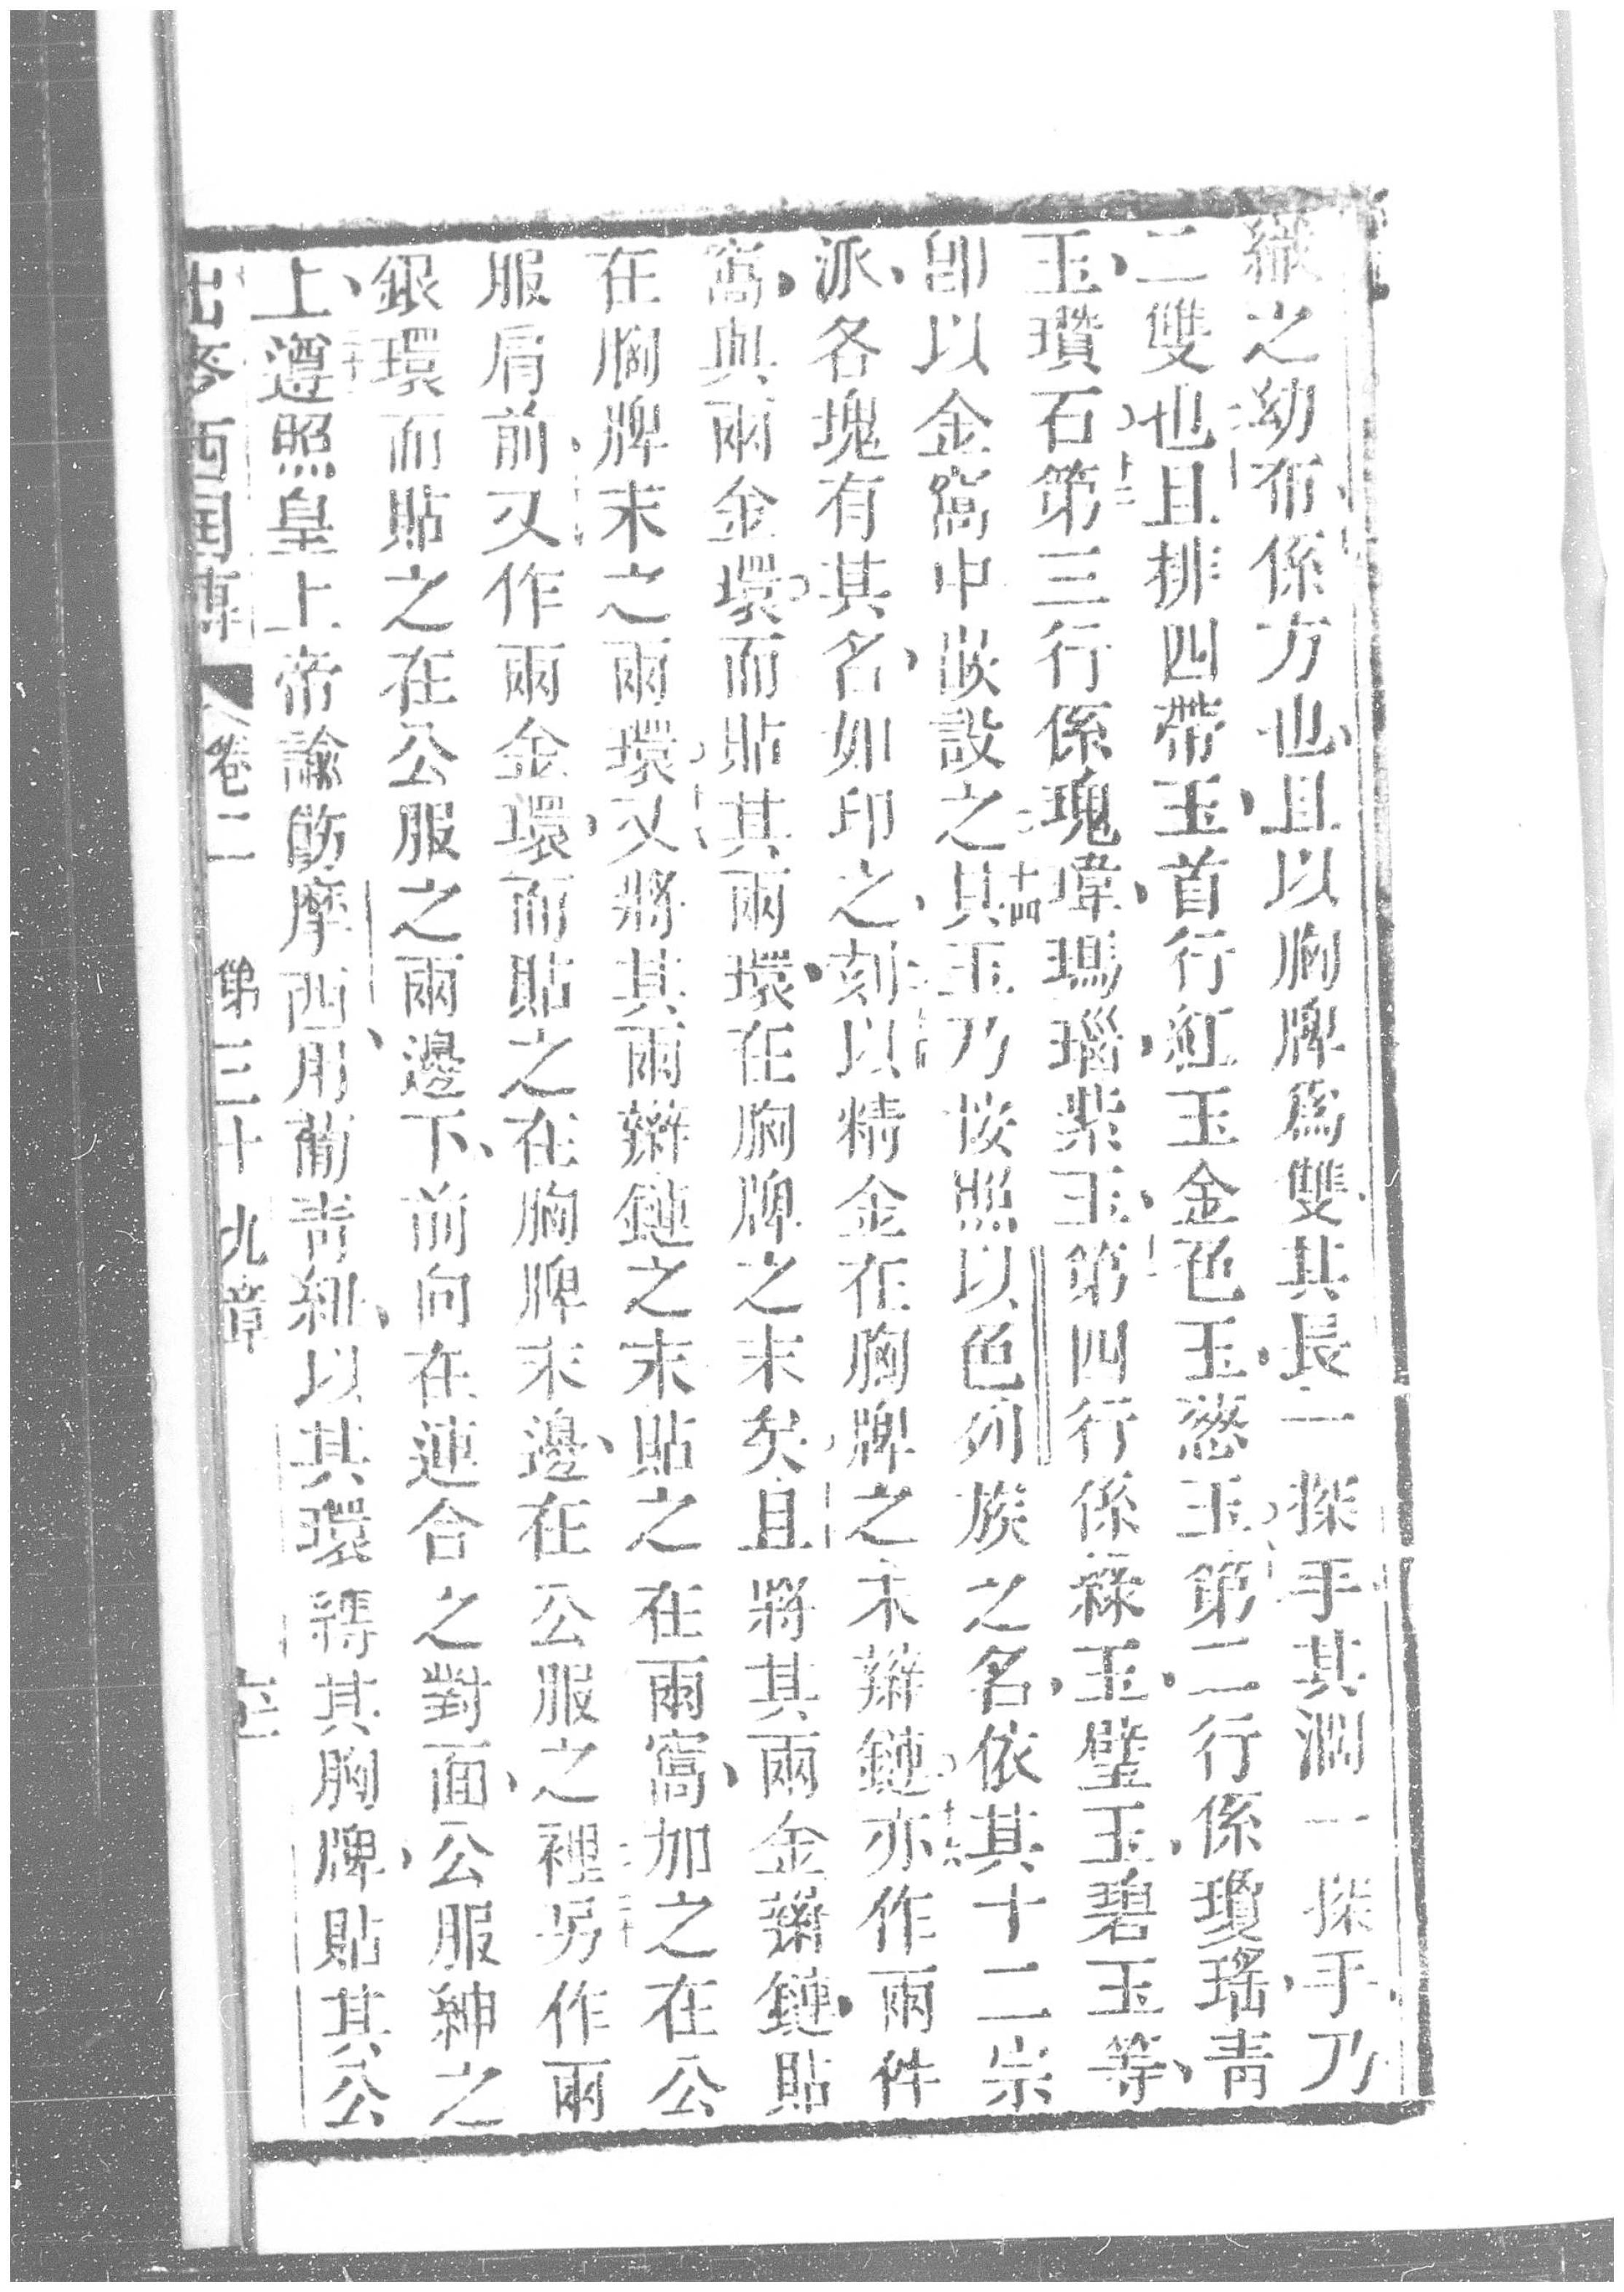 織之幼布係方也、且以胸牌爲雙其長一揬手其濶一揬手、乃
二雙也且排四帶玉、首行紅玉金色玉、葱玉第二行係瓊瑤、青
玉、瓚石第三行係瑰瑋、瑪瑙、紫玉、第四行係祿玉、璧玉、碧玉等、
卽以金窩中嵌設之十四其玉乃按照以色列族之名、依其十二宗
派、各塊有其名、如印之、刻以精金在胸牌之末辮鏈亦作兩件
窩、與兩金環而貼其兩環、在胸牌之末矣且將其兩金辮鏈、貼
在胸牌末之兩環又將其兩辮鏈之末貼之在兩窩、加之在公
服肩前又作兩金環、而貼之在胸牌末邊、在公服之裡另作兩
銀環而貼之在公服之兩邊下、前向在連合之對面、公服紳之
上、遵照皇上上帝諭飭摩西、用葡靑紃、以其環縛其胸牌、貼其公
出麥西國傳 卷二 第三十九章